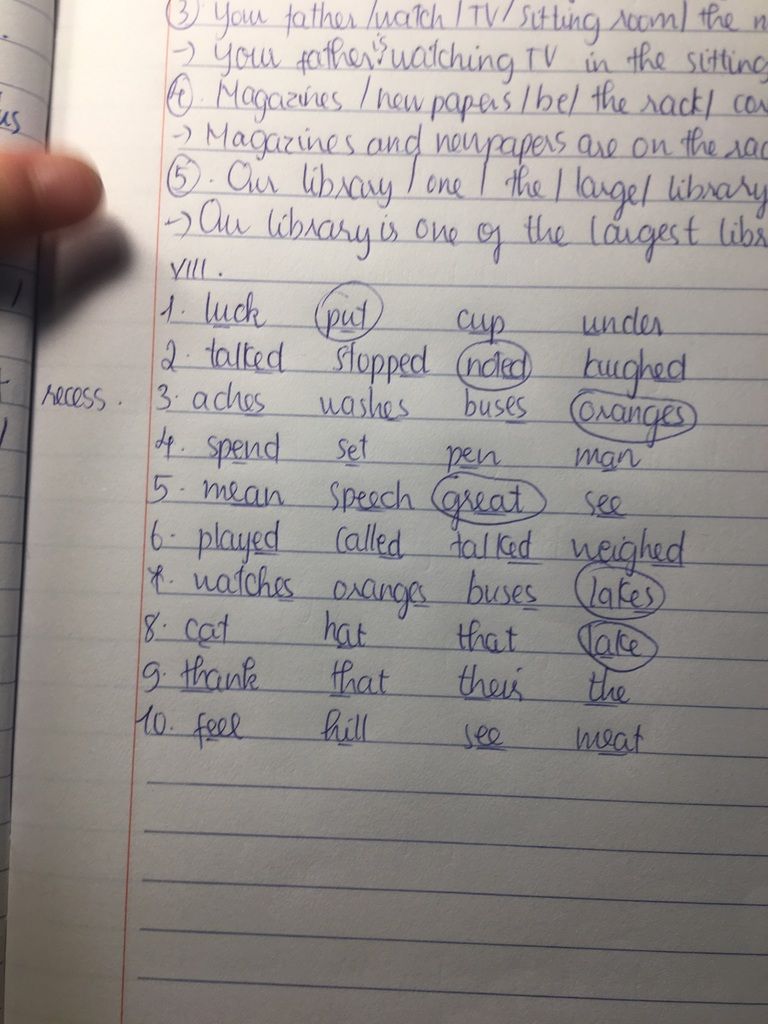 ③ Your father /watch / TV / sitting room / the n
→ Your father is watching TV in the sitting
④. Magazines / newpapers / be / the rack / co
us
→ Magazines and newpapers are on the rac
⑤. Our library / one / the / large / library
→ Our library is one of the largest libr
VIII.
1. luck put cup under
2. talked stopped noted laughed
recess. 3. aches washes buses oranges
4. spend set pen man
5. mean speech great see
6. played called talked weighed
7. watches oranges buses lakes
8. cat hat that lake
9. thank that their the
10. feel hill see meat